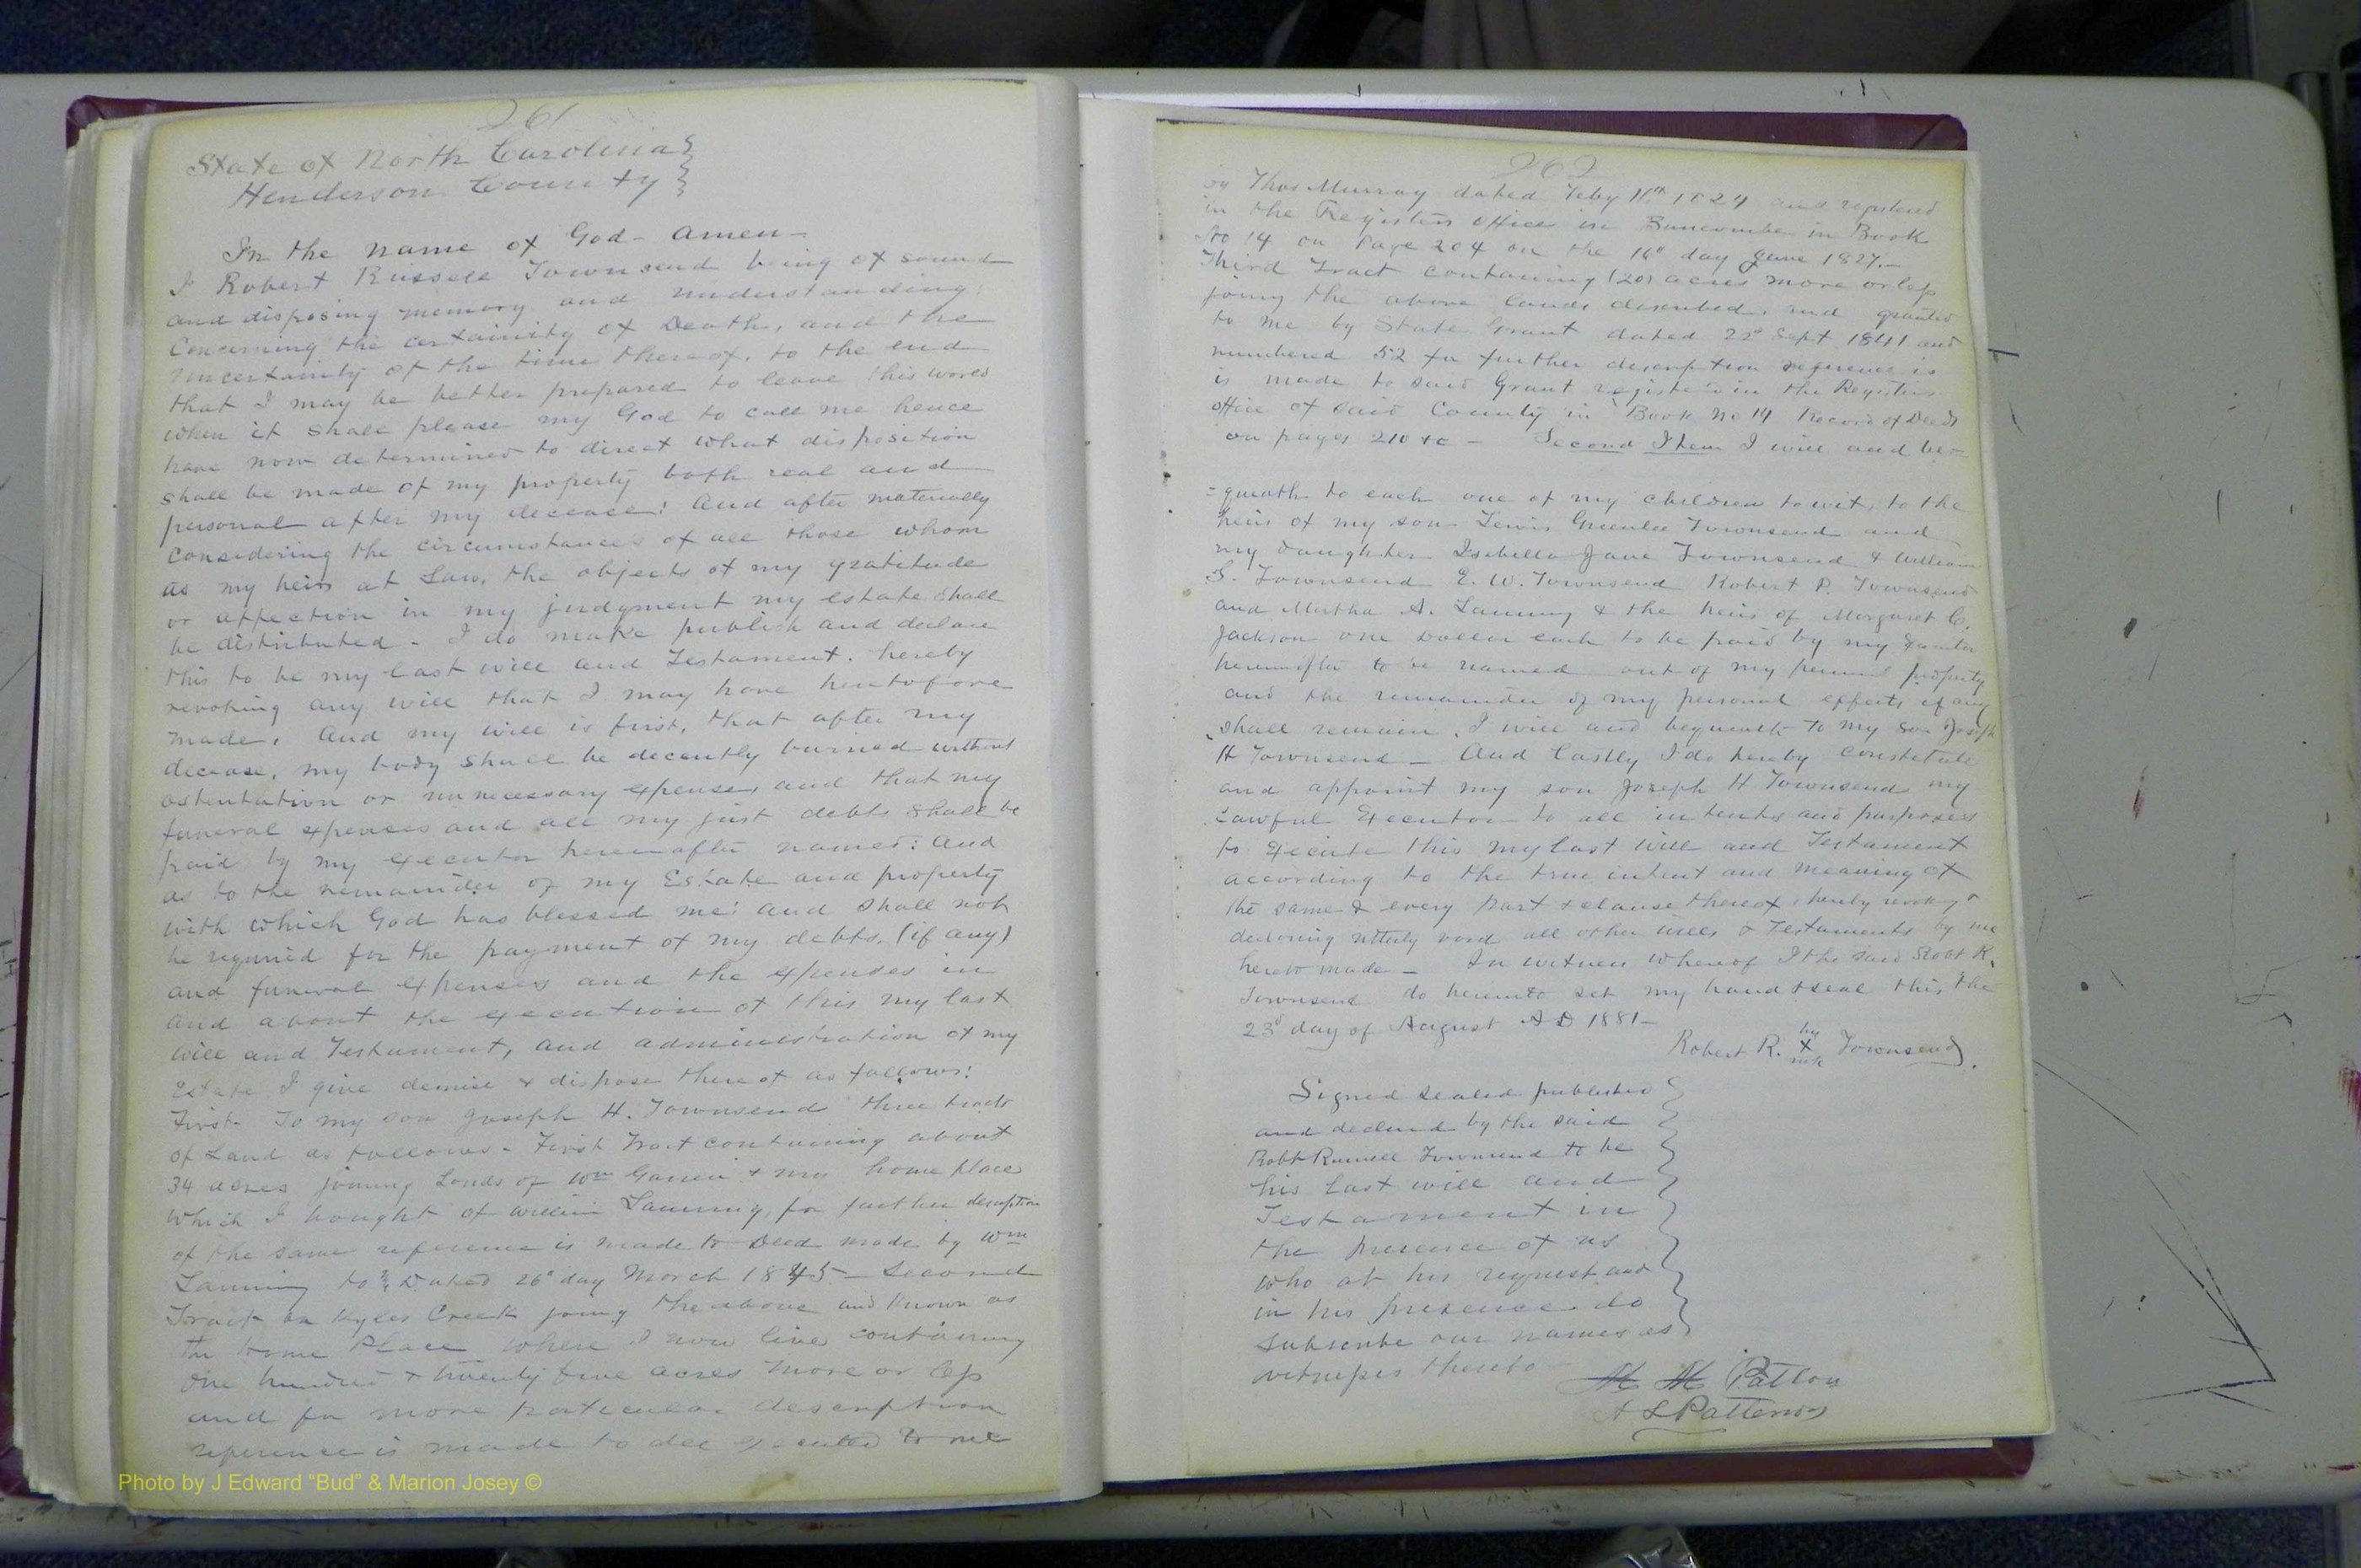 261
State of North Carolina
Henderson County
In the name of God - Amen -
I Robert Russell Townsend being of sound
and disposing memory and understanding:
Concerning the certainity of Death, and the
uncertainty of the time thereof, to the end
that I may be better prepared to leave this world
when it shall please my God to call me hence
have now determined to direct what disposition
shall be made of my property both real and
personal after my decease: And after materially
Considering the circumstances of all those whom
as my heirs at Law, the objects of my gratitude
or affection in my judgment my estate shall
be distributed - I do make publish and declare
this to be my last will and Testament. hereby
revoking any will that I may have heretofore
made. And my will is first, that after my
decease, my body shall be decently burried without
ostentation or unnecessary expenses and that my
funeral expenses and all my just debts shall be
paid by my executor hereinafter named: And
as to the remainder of my Estate and property
with which God has blessed me: and shall not
be required for the payment of my debts, (if any)
and funeral expenses and the expenses in
and about the execution of this my last
will and Testament, and administration of my
Estate I give demise & dispose thereof as follows:
First - To my son Joseph H. Townsend three tracts
of Land as follows - First Tract containing about
34 acres joining Lands of Wm & my home place
which I bought of William Lanning, for further description
of the same reference is made to Deed made by Wm
Lanning to Dated 26" day March 1845 - Second
Tract on Kyles Creek joing the above and known as
the home Place where I now live containing
one hundred & twenty five acres more or less
and for more particular description
reference is made to dee executed to me
Photo by J Edward “Bud” & Marion Josey ©
262
by Thos Murray dated Feby 11th 1824 and registered
in the Registers office in Buncombe in Book
No 14 on Page 204 on the 16" day June 1827. -
Third Tract containing (20) acres more or less
joing the above lands described, and granted
to me by State Grant dated 22d Sept 1841 and
numbered 52 for further description reference is
is made to said Grant registerd in the Registers
office of said County in Book No 14 Record of Deeds
on pages 210 &c - Second Item I will and be-
=queath to each one of my children to wit, to the
heirs of my son Lewis Greenlee Townsend and
my daughter Isabella Jane Townsend & William
S. Townsend E. W. Townsend Robert P. Townsend
and Martha A. Lanning & the heirs of Margaret C.
Jackson one Dollar each to be paid by my
hereinafter to be named out of my personal property
and the remainder of my personal effects if any
shall remain, I will and bequeath to my son Joseph
H Townsend - And Lastly I do hereby constitute
and appoint my son Joseph H Townsend my
Lawful Executor to all intents and purposes
to Execute this my last will and Testament
according to the true intent and meaning of
the same & every part & clause thereof, hereby revoking &
declaring utterly void all other wills & Testaments by me
hereto made - In witness whereof I the said Robt R.
Townsend do hereunto set my hand & seal this, the
23d day of August AD 1881 -
Robert R. his X mark Townsend
Signed sealed published
and declared by the said
Robt Russell Townsend to be
his last will and
Testament in
the presence of us
who at his request and
in his presence do
subscribe our names as
witnesses thereto
M M Patton
A L Patterson